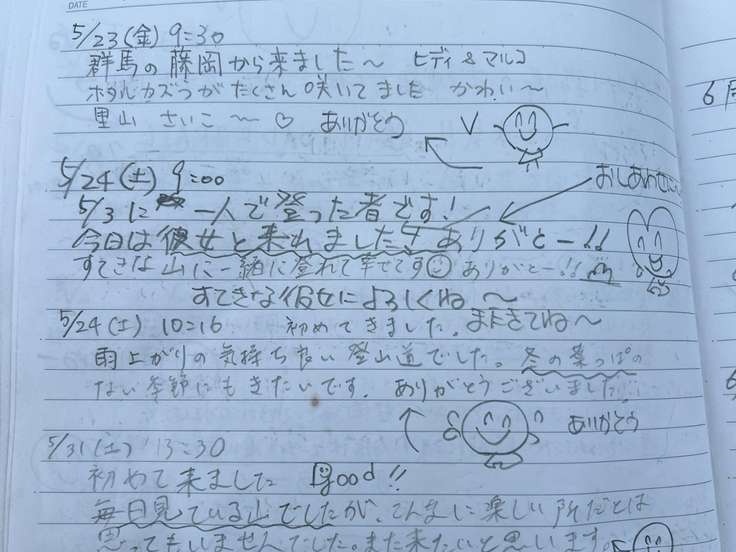 DATE
5/23(金) 9:30
群馬の藤岡から来ました〜 ヒディ&マルコ
ホタルカズラがたくさん咲いてました かわいい〜
里山 さいこ〜〜♡ ありがとう
6月
5/24(土) 9:00
おしあわせに
5/3に 一人で登った者です!
今日は彼女と来れました! ありがとー!!
すてきな山に一緒に登れて幸でです☺ ありがとー!!
すてきな彼女によろしくね〜
またきてね〜
5/24(土) 10:16 初めてきました.
雨上がりの気持ち良い登山道でした。冬の葉っぱの
ない季節にもきたいです. ありがとうございました!
ありがとう
5/31(土) 13:30
初めて来ました Good!!
毎日見ている山でしたが、こんなに楽しい所だとは
思ってもいませんでした。また来たいと思います。